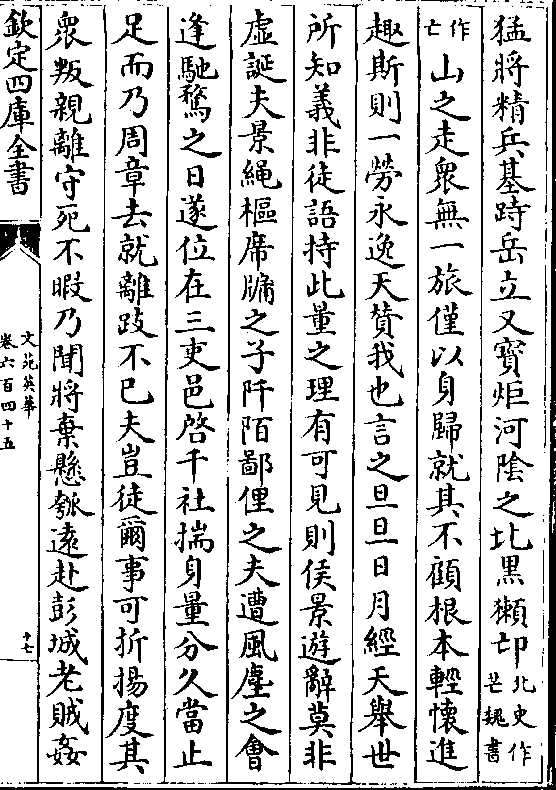 猛將精兵基跱岳立又寳炬河陰之北黒獺邙北史作芒魏書
作亡山之走衆無一旅僅以身歸就其不顧根本輕懐進
趣斯則一勞永逸天賛我也言之旦旦日月經天舉世
所知義非徒語持此量之理有可見則侯景遊辭莫非
虚誕夫景繩樞席牖之子阡陌鄙俚之夫遭風塵之㑹
逢馳騖之日遂位在三吏邑啓千社揣身量分久當止
足而乃周章去就離跂不已夫豈徒爾事可折揚度其
衆叛親離守死不暇乃聞將棄懸瓠逺赴彭城老賊姦
欽定四庫全書
文苑英華
卷六百四十五
十七